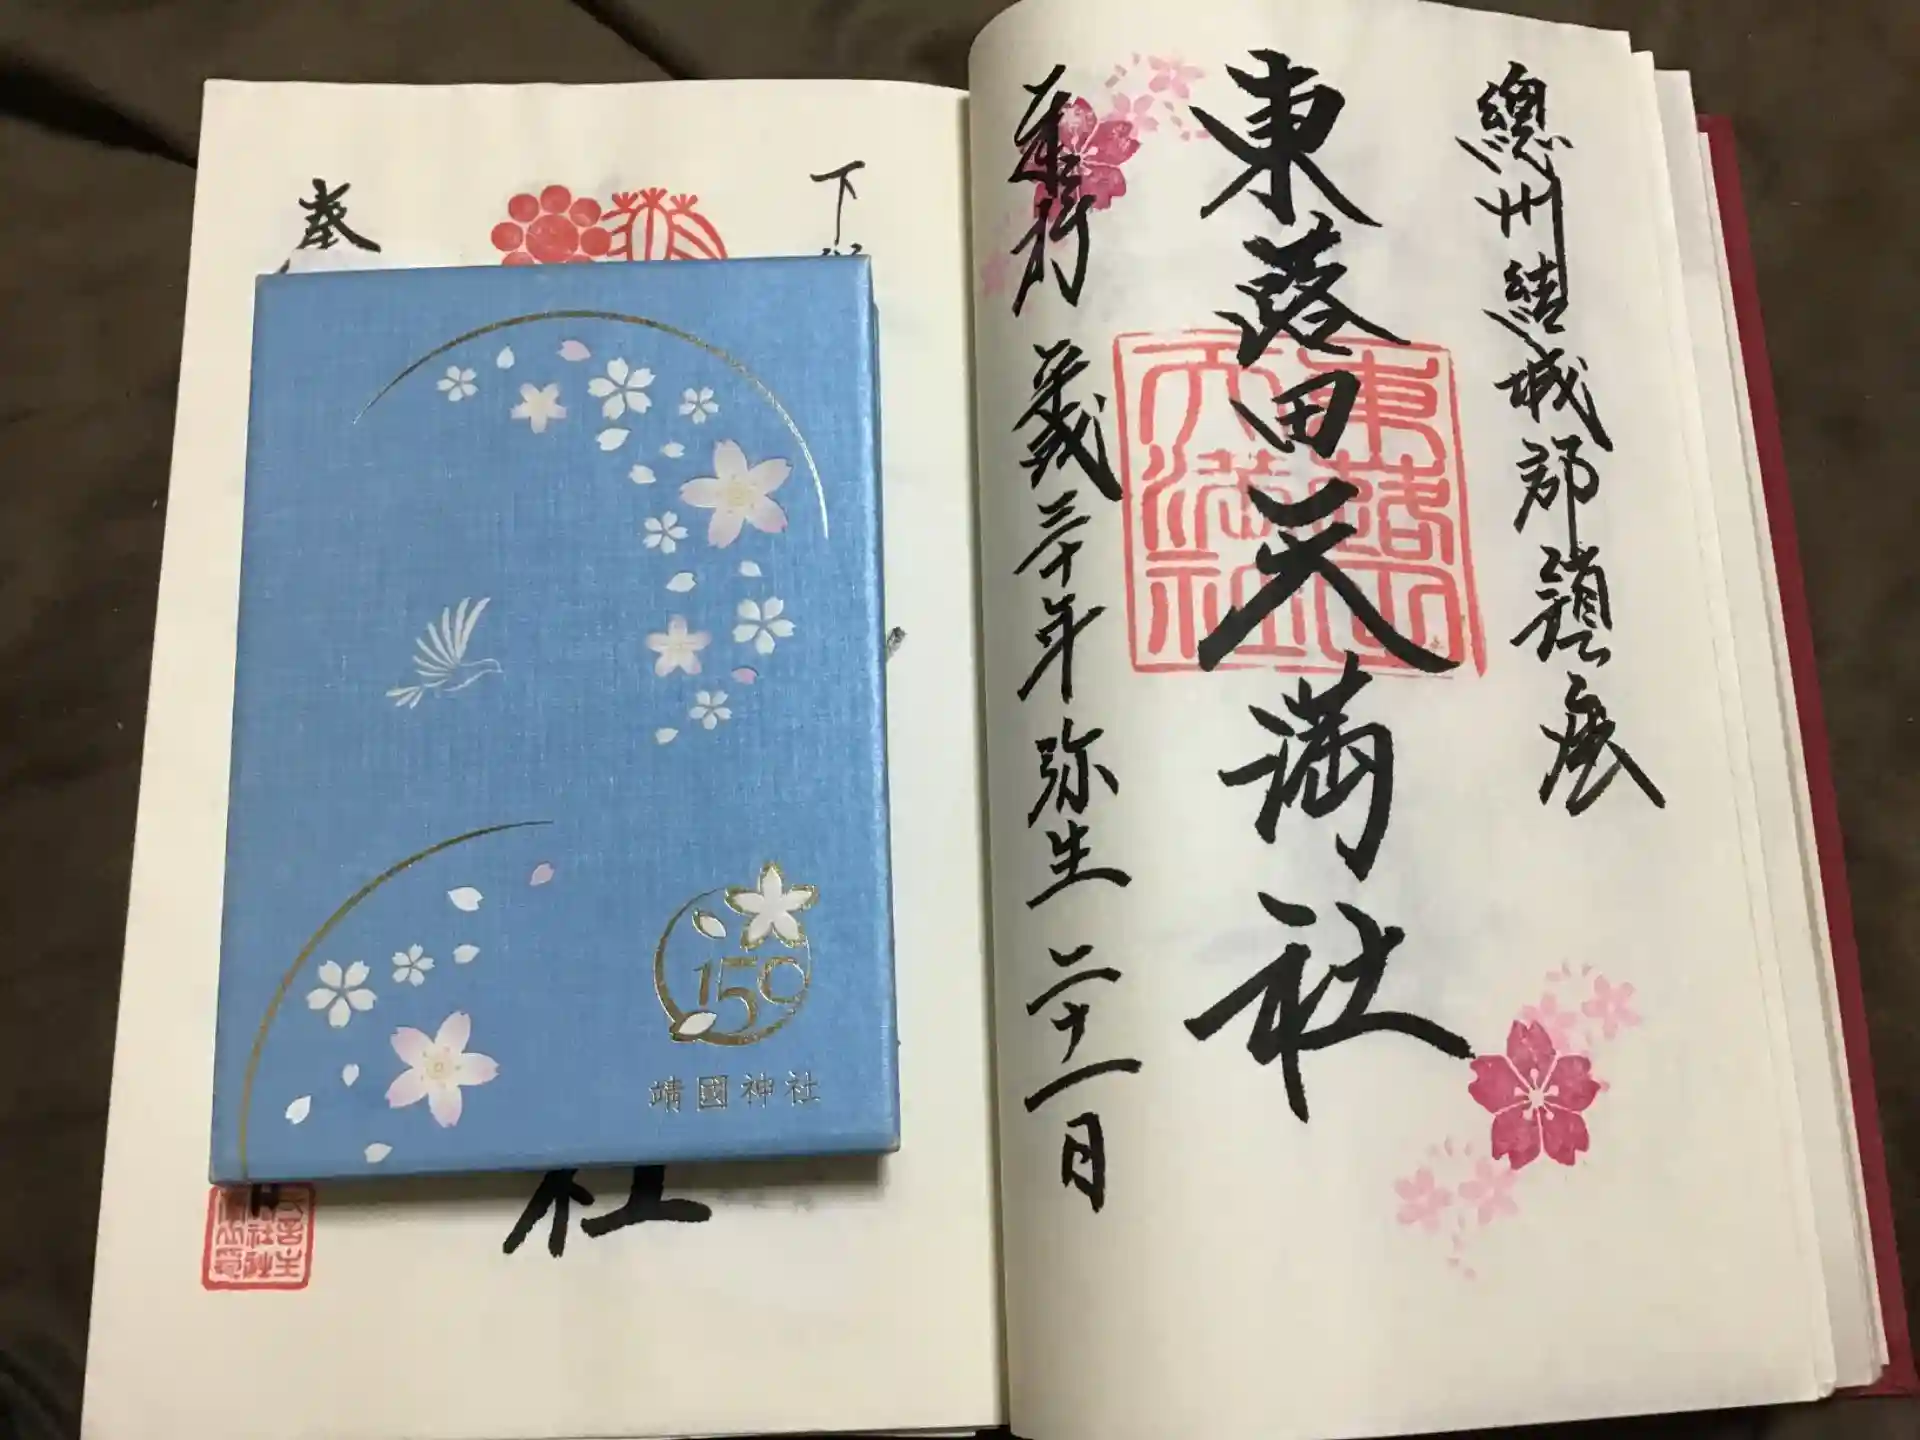 總州結城郡鎮座
東蕗田天満社
奉拝 平成三十年弥生二十一日
東蕗田
天満社
下
奉
社
150
靖國神社